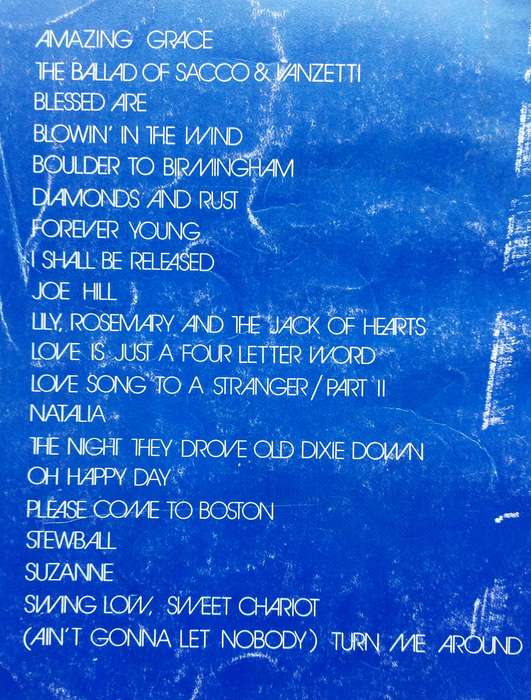 AMAZING GRACE
THE BALLAD OF SACCO & VANZETTI
BLESSED ARE
BLOWIN' IN THE WIND
BOULDER TO BIRMINGHAM
DIAMONDS AND RUST
FOREVER YOUNG
I SHALL BE RELEASED
JOE HILL
LILY, ROSEMARY AND THE JACK OF HEARTS
LOVE IS JUST A FOUR LETTER WORD
LOVE SONG TO A STRANGER/PART II
NATALIA
THE NIGHT THEY DROVE OLD DIXIE DOWN
OH HAPPY DAY
PLEASE COME TO BOSTON
STEWBALL
SUZANNE
SWING LOW, SWEET CHARIOT
(AIN'T GONNA LET NOBODY) TURN ME AROUND